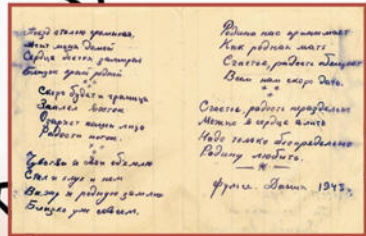 Поезд сталью громыхая,
Мчит меня домой
Сердце бьется замирая
Близок край родной
Скоро будет граница
Заалел восток
Озаряет наши лица
Радости поток.
Чувства и мои обняли
Стал и глух и нем
Вижу я родную землю
Близко уже совсем.
Родина нас принимает
Как родная мать
Счастье, радость обещает
Всем нам скоро дать.
Счастье, радость нераздельно
Можно в сердце влить
Надо только беспредельно
Родину любить.
Дахин 1945.